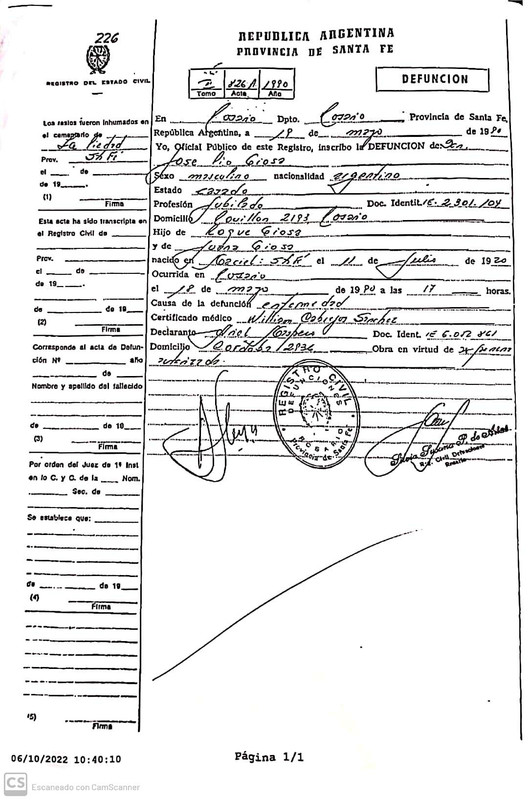 226
REGISTRO DEL ESTADO CIVIL
Los restos fueron inhumados en
el cementerio de
La Piedad
Prov. Sta Fé
el ____ de
de 19____.
(1) Firma
Esta acta ha sido transcripta en
el Registro Civil de
Prov.
el ____ de
de 19____.
de ____ de 19
(2) Firma
Corresponde al acta de Defun-
ción Nº ____ año
de
Nombre y apellido del fallecido
de ____ de 19
(3) Firma
Por orden del Juez de 1ª Inst
en lo C. y C. de la ____ Nom.
Sec. de
Se establece que:
de ____ de 19
(4) Firma
(5) Firma
REPUBLICA ARGENTINA
PROVINCIA DE SANTA FE
II 826 A 1990
Tomo Acta Año
DEFUNCION
En Rosario Dpto. Rosario Provincia de Santa Fe,
República Argentina, a 19 de mayo de 1990
Yo, Oficial Público de este Registro, inscribo la DEFUNCION de:
Jose Pio Giosa
Sexo masculino nacionalidad argentino
Estado casado
Profesión Jubilado Doc. Identit. IE 2.301.104
Domicilio 2193 Rosario
Hijo de Roque Giosa
y de Juana Giosa
nacido en Maciel: Sta Fé el 11 de Julio de 1920
Ocurrida en Rosario
el 18 de mayo de 1990 a las 17 horas.
Causa de la defunción enfermedad
Certificado médico William Sanchez
Declarante Ariel Doc. Ident. IE 6.012.861
Domicilio Cordoba 2936 Obra en virtud de
autorizado
REGISTRO CIVIL
DEFUNCIONES
ROSARIO
Provincia de Santa Fe
Silvia Susana P. de
Civil Defunciones
Rosario
06/10/2022 10:40:10
Página 1/1
CS Escaneado con CamScanner